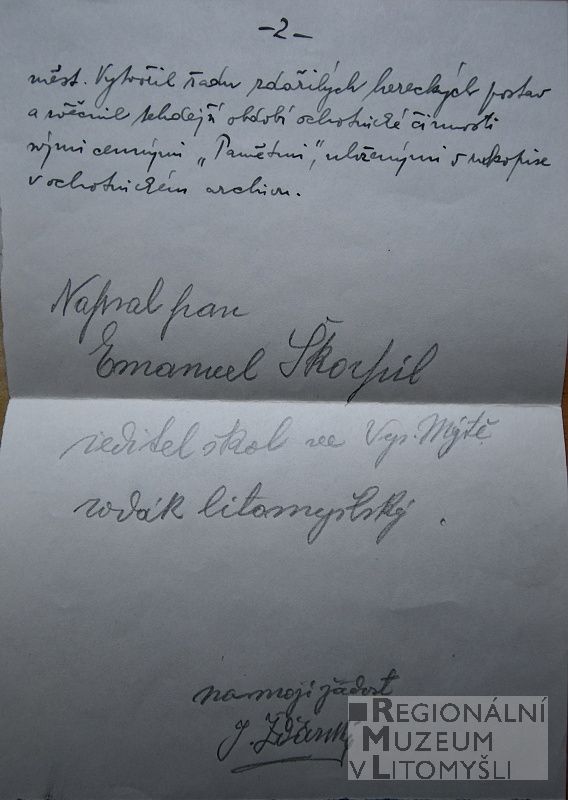 -2-
měst. Vytvořil řadu zdařilých hereckých postav
a zvěčnil tehdejší období ochotnické činnosti
svými cennými „Pamětmi“, uloženými v rukopise
v ochotnickém archivu.
Napsal pan
Emanuel Škorpil
ředitel škol ve Vys. Mýtě
rodák litomyšlský.
na moji žádost
J. Žďárský
REGIONÁLNÍ
MUZEUM
V LITOMYŠLI